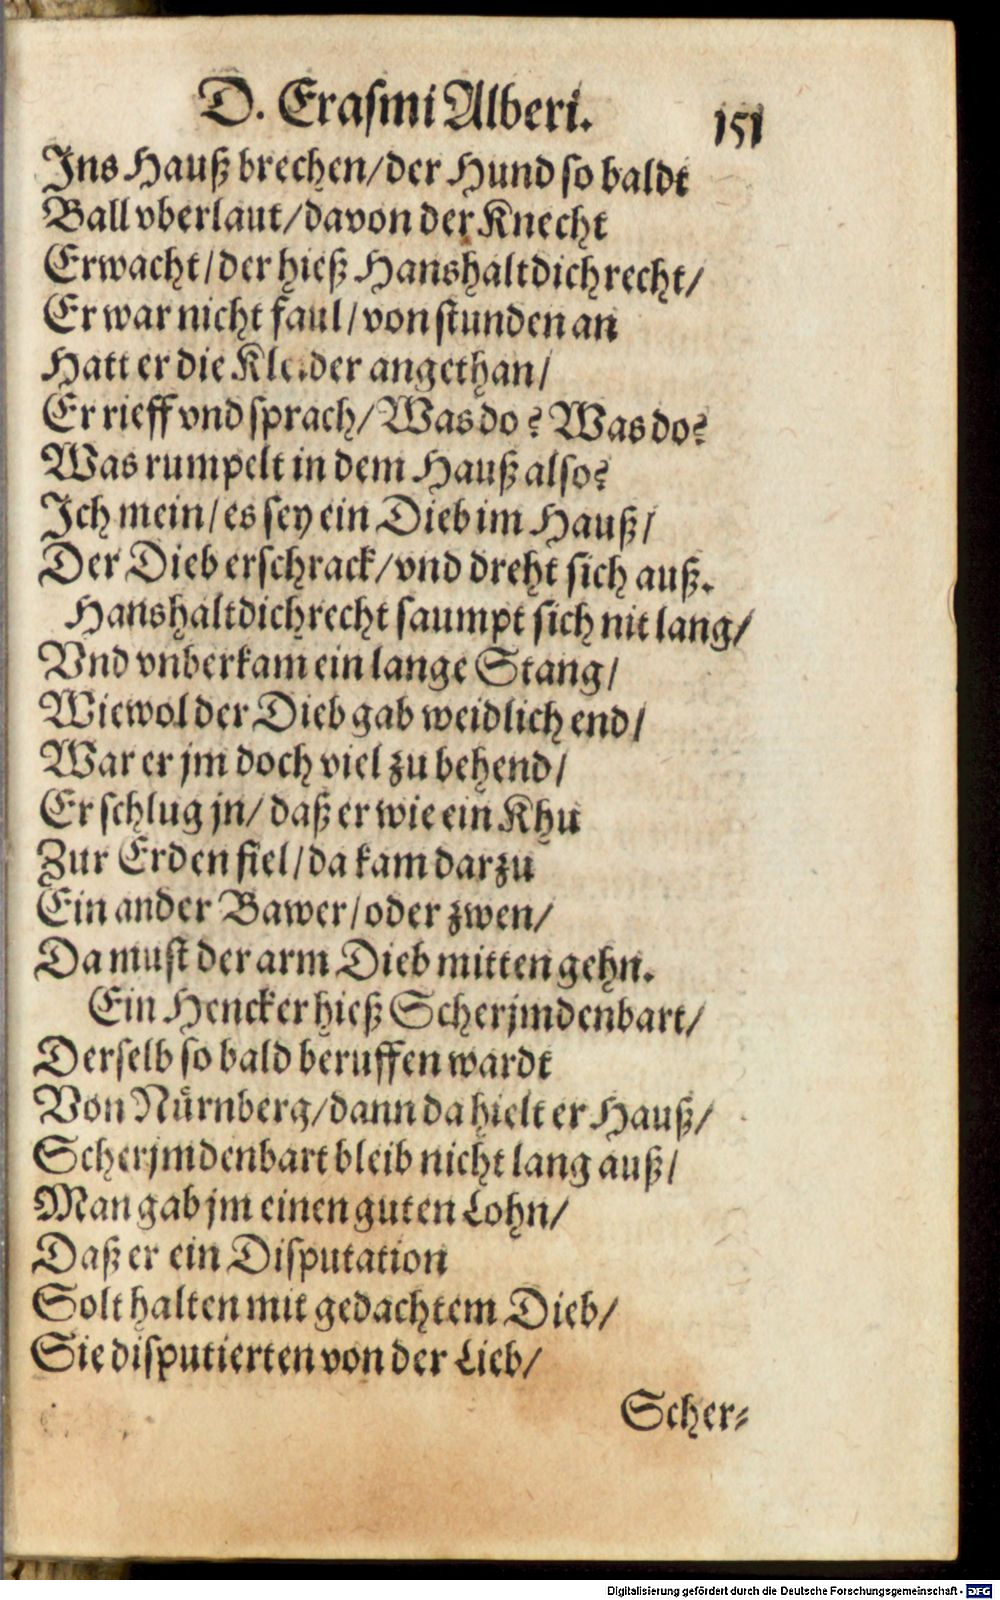 D. Erasmi Alberi. 151
Ins Hauß brechen/der Hund so baldt
Ball vberlaut/davon der Knecht
Erwacht/der hieß Hanshaltdichrecht/
Er war nicht faul/von stunden an
Hatt er die Kleider angethan/
Er rieff vnd sprach/Was do? Was do?
Was rumpelt in dem Hauß also?
Ich mein/es sey ein Dieb im Hauß/
Der Dieb erschrack/vnd dreht sich auß.
Hanshaltdichrecht saumpt sich nit lang/
Vnd vnberkam ein lange Stang/
Wiewol der Dieb gab weidlich end/
War er jm doch viel zu behend/
Er schlug jn/daß er wie ein Khu
Zur Erden fiel/da kam darzu
Ein ander Bawer/oder zwen/
Da must der arm Dieb mitten gehn.
Ein Hencker hieß Scherjmdenbart/
Derselb so bald beruffen wardt
Von Nürnberg/dann da hielt er Hauß/
Scherjmdenbart bleib nicht lang auß/
Man gab jm einen guten Lohn/
Daß er ein Disputation
Solt halten mit gedachtem Dieb/
Sie disputierten von der Lieb/
Scher-
Digitalisierung gefördert durch die Deutsche Forschungsgemeinschaft - DFG